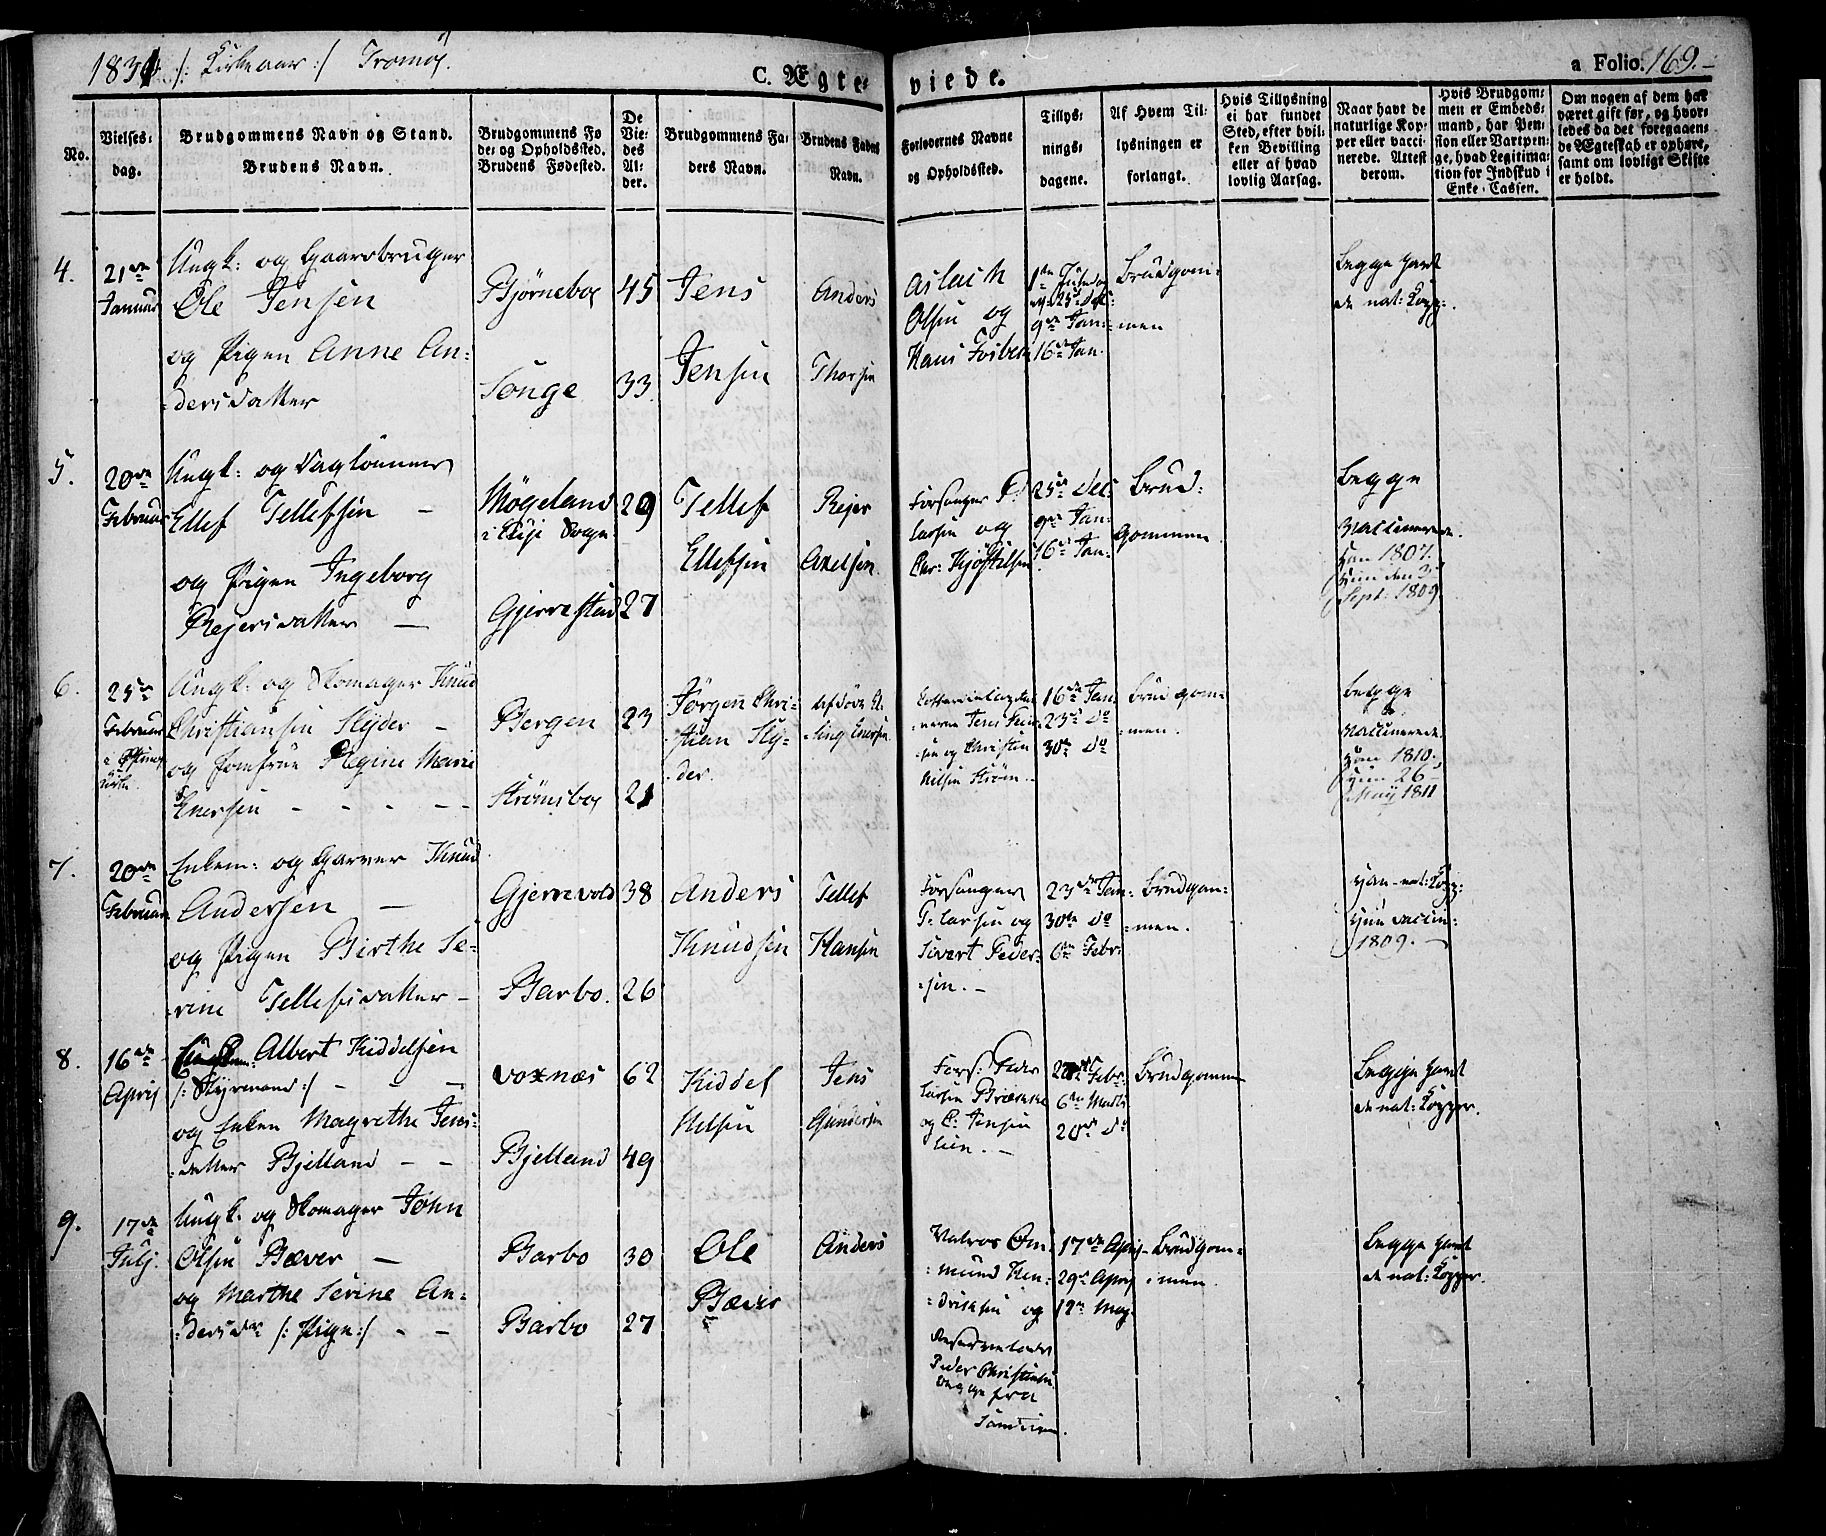 1831 /: Kirkeaar :/ Tromöe.
C. Ægte-
viede.
a Folio. 169.
No.
Vielses-
dag.
Brudgommens Navn og Stand.
Brudens Navn.
Brudgommens Fø
de- og Opholdssted.
Brudens Fødested.
De
Vie-
des
Al-
der.
Brudgommens Fa-
ders Navn.
Brudens Faders
Navn.
Forlovernes Navne
og Opholdssted.
Tillys-
nings-
dagene.
Af Hvem Til-
lysningen er
forlangt.
Hvis Tillysning
ei har fundet
Sted, efter hvil-
ken Bevilling
eller af hvad
lovlig Aarsag.
Naar havt de
naturlige Kop-
per eller vacci-
nerede. Attest
derom.
Hvis Brudgom-
men er Embeds-
mand, har Pen-
sion eller Vartpen-
ge, hvad Legitima-
tion for Indskud i
Enke-Cassen.
Om nogen af dem har
været gift før, og hvor-
ledes da det foregaaen-
de Ægteskab er ophørt,
samt om lovligt Skifte
er holdt.
4.
21de
Januar
Ungk: og Gaardbruger
Ole Jensen
og Pigen Anne An-
dersdatter
Bjørneboe
Songe
45
33
Jens
Jensen
Anders
Thorsen
Aslach
Olsen og
Hans
9de Jan:
16de Jan.
Brudgom-
men
Begge havt
de nat: Kopp:
5.
20de
Februar
Ungk: og Daglönner
Ellef Tellefsen –
og Pigen Ingeborg
Rejersdatter –
Mögeland
i Sogn
Gjerrestad
29
27
Tellef
Ellefsen
Rejer
Axelsen
Forsanger P.
Larsen og
Chr: Kjöstelsen
25de Dec:
9de Jan:
16de Jan:
Brud-
gommen
Begge
Vaccinerede.
Han 1807.
Hun den 3
Sept: 1809
6.
25de
Februar
Ungk: og Skomager Knud
Christiansen Slyder –
og Jomfrue Regine Marie
Enersen – – – –
Bergen
Strömsboe
23
21
Jörgen Chri-
stian Sly-
der.
Enersen
Jens
og Christen
Nilsen Ström.
16de Jan:
23de do
30de do
Brudgom-
men.
Begge
Vaccinerede
Han 1810.
Hun 26
May 1811
7.
20de
Februar
Enkem: og Garver Knud
Andersen –
og Pigen Birthe Se-
rine Tellefsdatter –
Gjerrevold
Barbo.
38
26
Anders
Knudsen
Tellef
Hansen
Forsanger
P: Larsen og
Sivert Peder-
sen. –
23de Jan:
30te do
6te Febr:
Brudgom-
men.
Han – nat: Kopp:
Hun vaccin:
1809. –
8.
16de
April
Albert Kiddelsen
/: Styrmand :/ – – –
og Enken Magrethe Jens-
datter Bjelland – –
Voxnæs
Bjelland
62
49
Kiddel
Nelsen
Jens
Gundersen
Fors: Peder
Larsen
og C: Jensen
Lien. –
Febr:
6te Marts
20de do
Brudgommen
Begge havt
de nat: Kopper.
9.
17de
Julj.
Ungk: og Skomager John
Olsen Bæver –
og Marthe Serine An-
dersdr /: Pige :/ – –
Barbo
Barbo
30
27
Ole
Bæver
Anders
Matros Om-
mund Hen-
driksen og
Peder Christensen
begge fra
17de April
29de April
12te May.
Brudgom-
men.
Begge havt
de nat: Kopper.